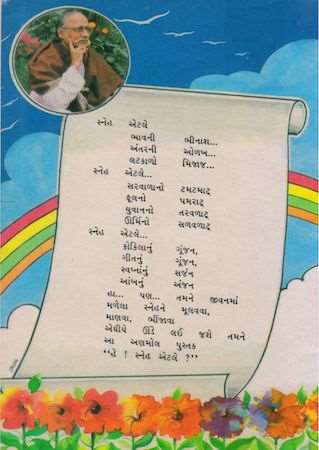 સ્નેહ એટલે
ભાવની ભીનાશ...
અંતરની ઓળખ...
લટકાળો મિજાજ...
સ્નેહ એટલે...
સરવાળાનો ટમટમાટ
ફૂલનો પમરાટ
યુવાનનો તરવળાટ
ઊર્મિનો સળવળાટ
સ્નેહ એટલે...
કોકિલાનું ગૂંજન,
ગીતનું ગૂંજન,
સ્વપ્નાંનું સર્જન
આંખનું અંજન
હા... પણ... તમને જીવનમાં
મળેલા સ્નેહને મૂલવવા,
માણવા, ભીંજાવા
એથીયે ઊંડે લઈ જશે તમને
આ અણમોલ પુસ્તક
"હેં ! સ્નેહ એટલે ?"